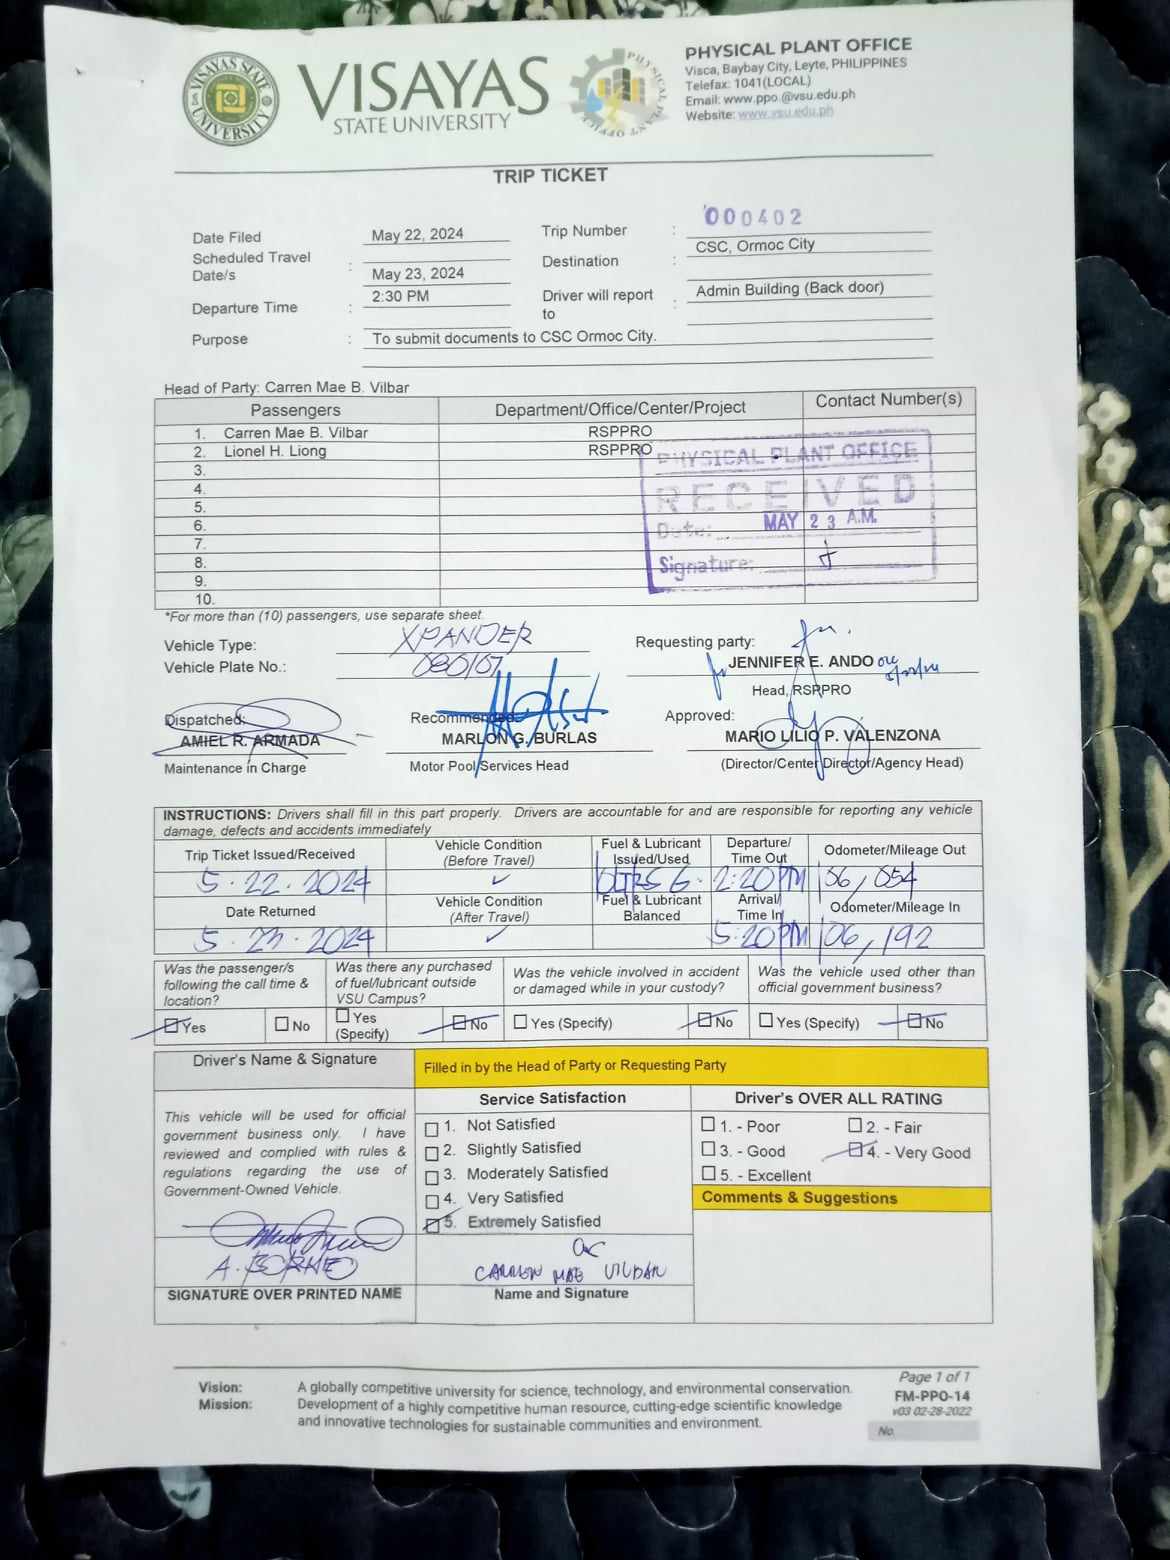 VISAYAS STATE UNIVERSITY
VISAYAS
STATE UNIVERSITY
PHYSICAL PLANT OFFICE
PHYSICAL PLANT OFFICE
Visca, Baybay City, Leyte, PHILIPPINES
Telefax: 1041(LOCAL)
Email: www.ppo.@vsu.edu.ph
Website: www.vsu.edu.ph
TRIP TICKET
Date Filed May 22, 2024 Trip Number : 000402
Scheduled Travel Date/s : May 23, 2024 Destination : CSC, Ormoc City
Departure Time : 2:30 PM Driver will report to : Admin Building (Back door)
Purpose : To submit documents to CSC Ormoc City.
Head of Party: Carren Mae B. Vilbar
Passengers Department/Office/Center/Project Contact Number(s)
1. Carren Mae B. Vilbar RSPPRO
2. Lionel H. Liong RSPPRO
3.
4.
5.
6.
7.
8.
9.
10.
PHYSICAL PLANT OFFICE
RECEIVED
Date: MAY 23 A.M.
Signature:
*For more than (10) passengers, use separate sheet.
Vehicle Type: XPANDER Requesting party:
Vehicle Plate No.: JENNIFER E. ANDO
Head, RSPPRO
Dispatched: Recommended: Approved:
AMIEL R. ARMADA MARLON G. BURLAS MARIO LILIO P. VALENZONA
Maintenance in Charge Motor Pool Services Head (Director/Center Director/Agency Head)
INSTRUCTIONS: Drivers shall fill in this part properly. Drivers are accountable for and are responsible for reporting any vehicle
damage, defects and accidents immediately
Trip Ticket Issued/Received Vehicle Condition (Before Travel) Fuel & Lubricant Issued/Used Departure/ Time Out Odometer/Mileage Out
5.22.2024 2:20PM 106,054
Date Returned Vehicle Condition (After Travel) Fuel & Lubricant Balanced Arrival/ Time In Odometer/Mileage In
5.23.2024 5:20PM 106,192
Was the passenger/s following the call time & location? Was there any purchased of fuel/lubricant outside VSU Campus? Was the vehicle involved in accident or damaged while in your custody? Was the vehicle used other than official government business?
Yes No Yes (Specify) No Yes (Specify) No Yes (Specify) No
Driver's Name & Signature Filled in by the Head of Party or Requesting Party
Service Satisfaction Driver's OVER ALL RATING
This vehicle will be used for official
government business only. I have
reviewed and complied with rules &
regulations regarding the use of
Government-Owned Vehicle.
1. Not Satisfied
2. Slightly Satisfied
3. Moderately Satisfied
4. Very Satisfied
5. Extremely Satisfied
1. - Poor 2. - Fair
3. - Good 4. - Very Good
5. - Excellent
Comments & Suggestions
A. BORNEO CARREN MAE VILBAR
SIGNATURE OVER PRINTED NAME Name and Signature
Vision: A globally competitive university for science, technology, and environmental conservation.
Mission: Development of a highly competitive human resource, cutting-edge scientific knowledge
and innovative technologies for sustainable communities and environment.
Page 1 of 1
FM-PPO-14
v03 02-28-2022
No.